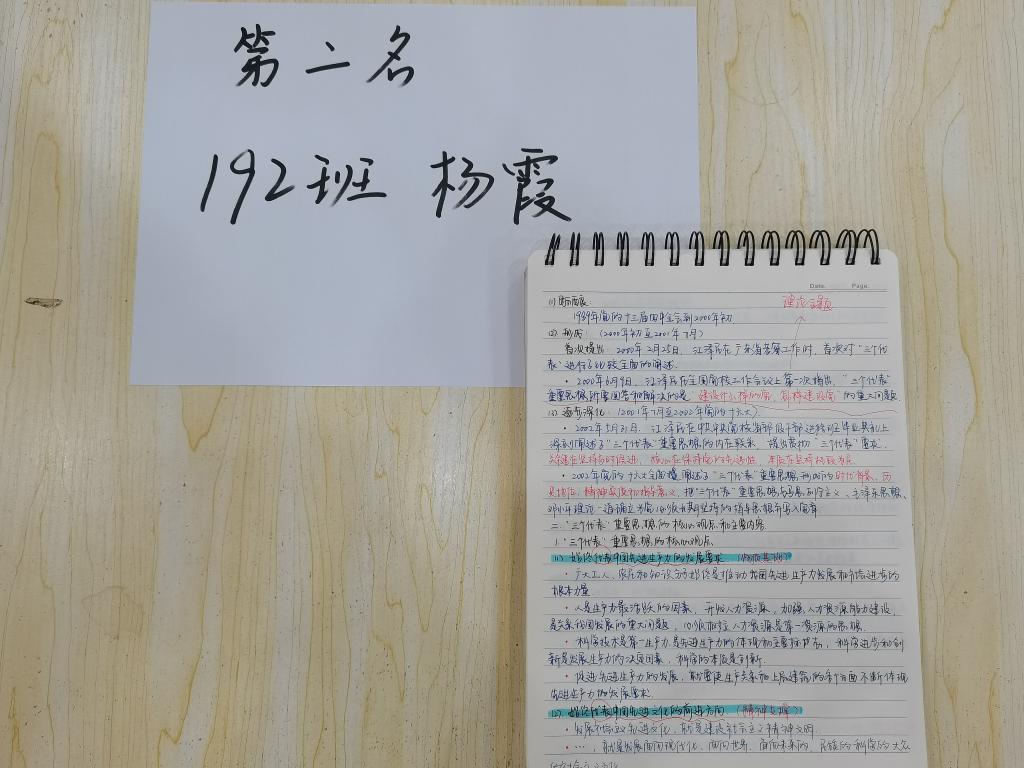 第二名
192班 杨霞
Date. Page.
(1) 酝酿:
理论主题
1989年党的十三届四中全会到2000年初
(2) 形成: (2000年初至2001年7月)
首次提出: 2000年2月25日, 江泽民在广东省考察工作时, 首次对“三个代
表”进行了比较全面的阐述.
· 2000年6月9日, 江泽民在全国党校工作会议上第一次指出, “三个代表”
重要思想所要回答和解决的是 建设什么样的党, 怎样建设党 的重大问题.
(3) 逐步深化: (2001年7月至2002年党的十六大).
· 2002年5月31日, 江泽民在中共中央党校省部级干部进修班毕业典礼上
深刻阐述了“三个代表”重要思想的内在联系, 提出贯彻“三个代表”要求,
关键在坚持与时俱进, 核心在保持党的先进性, 本质在坚持执政为民
· 2002年党的十六大全面阐述了“三个代表”重要思想形成的时代背景, 历
史地位, 精神实质和指导意义, 把“三个代表”重要思想与马克思列宁主义、毛泽东思想、
邓小平理论一道确立为党必须长期坚持的指导思想并写入党章
二. “三个代表”重要思想的核心观点和主要内容
1. “三个代表”重要思想的核心观点
(1) 始终代表中国先进生产力的发展要求 (物质基础)
· 广大工人、农民和知识分子始终是推动我国先进生产力发展和社会进步的
根本力量
· 人是生产力最活跃的因素, 开发人力资源, 加强人力资源能力建设,
是关系我国发展的重大问题, 必须树立人力资源是第一资源的思想.
· 科学技术是第一生产力, 是先进生产力的体现和主要标志, 科学进步和创
新是发展生产力的决定因素, 科学的本质是创新.
· 促进先进生产力的发展, 就要使生产关系和上层建筑的各个方面不断体现
先进生产力的发展要求.
(2) 始终代表中国先进文化的前进方向 (精神支撑)
· 发展社会主义先进文化, 就是建设社会主义精神文明
· …, 就是发展面向现代化、面向世界、面向未来的, 民族的科学的大众